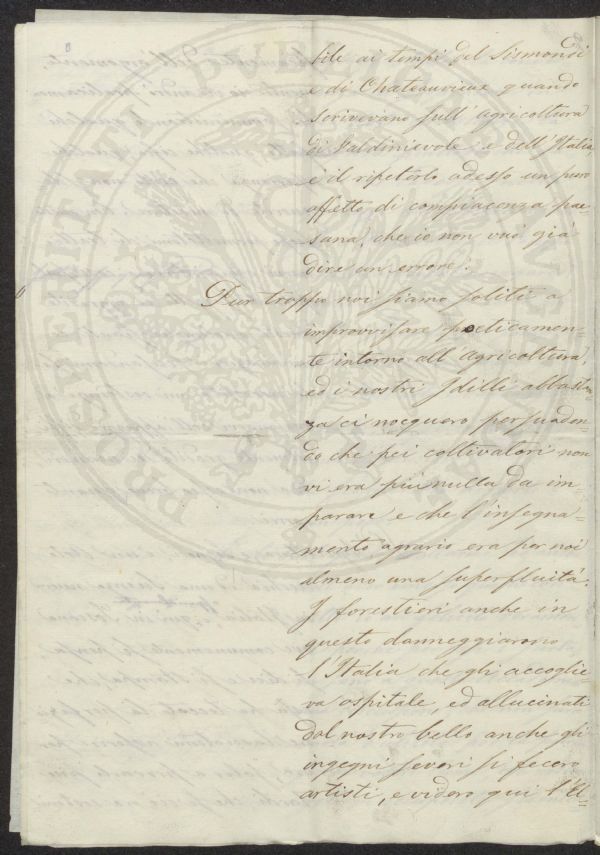 bile ai tempi del Sismondi
e di Chateauvieux quando
scrivevano sull'agricoltura
di Valdinievole e dell'Italia,
è il ripeterlo adesso un puro
affetto di compiacenza pae-
sana, che io non vuò già
dire un errore.
Pur troppo noi siamo soliti a
improvvisare poeticamen-
te intorno all'agricoltura,
ed i nostri Idilli abbastan-
za ci nocquero persuaden-
do che pei coltivatori non
vi era più nulla da im-
parare e che l'insegna-
mento agrario era per noi
almeno una superfluità.
I forestieri anche in
questo danneggiarono
l'Italia che gli accoglie-
va ospitale, ed allucinati
dal nostro bello anche gli
ingegni severi si fecero
artisti, e videro qui l'El-
PROSPERITATI PUBLICAE AUGENDAE